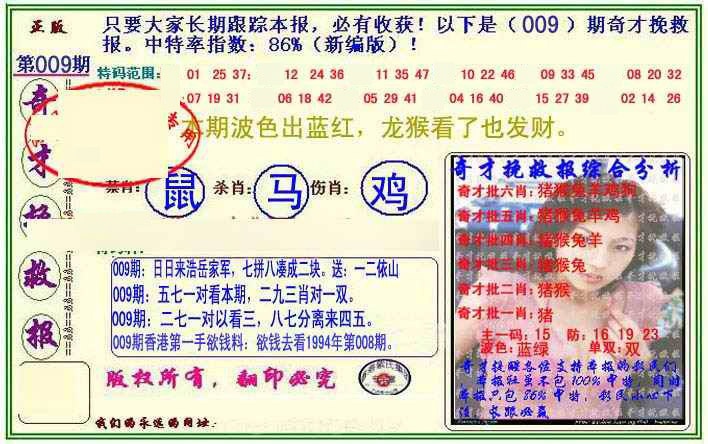 正版
只要大家长期跟踪本报，必有收获！以下是（009）期奇才挽救
报。中特率指数：86%（新编版）！
第009期
特码范围：
01 25 37: 12 24 36 11 35 47 10 22 46 09 33 45 08 20 32
07 19 31 06 18 42 05 29 41 04 16 40 15 27 39 02 14 26
本期波色出蓝红，龙猴看了也发财。
奇
才
救
报
鼠
杀肖：
马
伤肖：
鸡
009期：日日来浩岳家军，七拼八凑成二块。送：一二依山
009期：五七一对看本期，二九三肖对一双。
009期：二七一对以看三，八七分离来四五。
009期香港第一手欲钱料：欲钱去看1994年第008期。
版权所有，翻印必究
我们的永远的网址：
奇才挽救报综合分析
奇才批六肖：猪猴兔羊鸡狗
奇才批五肖：猪猴兔羊鸡
奇才批四肖：猪猴兔羊
奇才批三肖：猪猴兔
奇才批二肖：猪猴
奇才批一肖：猪
主一码：15 防：16 19 23
波色：蓝绿 单双：双
奇才挽救各位支持本报的彩民们
本报狂虽不包100%中特，同时
本报只包86%中特，彩民小心下
注